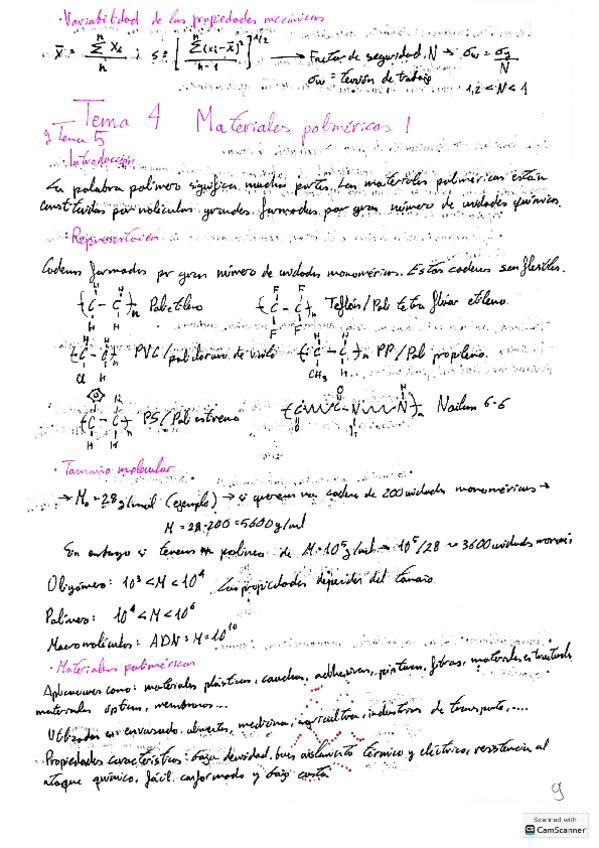 · Variabilidad de las propiedades mecánicas
x̄ = Σⁿ xᵢ / n ; s = [ Σⁿ (xᵢ - x̄)² / n-1 ]^1/2 → Factor de seguridad, N → σw = σy / N
σw = tensión de trabajo
1,2 < N < 4
Tema 4 Materiales poliméricos 1
y Tema 5
· Introducción
La palabra polímero significa muchas partes. Los materiales poliméricos están
constituidos por moléculas grandes formadas por gran número de unidades químicas.
· Representación
Cadenas formadas por gran número de unidades monoméricas. Estas cadenas son flexibles.
Polietileno Teflón/Poli tetra fluor etileno.
PVC/policloruro de vinilo PP/Poli propileno.
PS/Poliestireno Nailon 6-6
· Tamaño molecular
→ M₀ = 28 g/mol (ejemplo) → si queremos una cadena de 200 unidades monoméricas →
M = 28·200 = 5600 g/mol
Sin embargo si tenemos polímero de M = 10⁵ g/mol → 10⁵/28 ~ 3600 unidades
Oligómero: 10³ < M < 10⁴ Las propiedades dependen del tamaño
Polímero: 10⁴ < M < 10⁶
Macromoléculas: ADN: M = 10¹⁰
· Materiales poliméricos
Aplicaciones como: materiales plásticos, cauchos, adhesivos, pinturas, fibras, materiales estructurales
materiales ópticos, membranas...
Utilizados en envasado, alimentos, medicina, agricultura, industrias de transporte, ....
Propiedades características: baja densidad, buen aislamiento térmico y eléctrico, resistencia al
ataque químico, fácil conformado y bajo coste
9
Scanned with
CS CamScanner